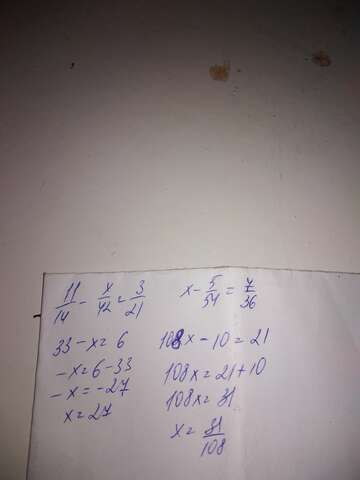 11/14 - x/42 = 3/21
33 - x = 6
-x = 6 - 33
-x = -27
x = 27
x - 5/54 = 7/36
108x - 10 = 21
108x = 21 + 10
108x = 31
x = 31/108